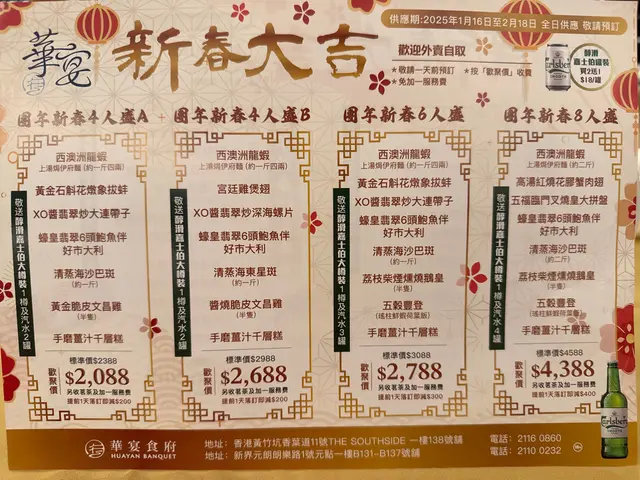 華宴
新春大吉
供應期:2025年1月16日至2月18日 全日供應 敬請預訂
歡迎外賣自取
*敬請一天前預訂 *按「歡聚價」收費
*免加一服務費
醇滑
嘉士伯罐裝
買2送1
$18/罐
團年新春4人盛A
西澳洲龍蝦
上湯焗伊府麵(約一斤四兩)
黃金石斛花燉象拔蚌
XO醬翡翠炒大連帶子
蠔皇翡翠6頭鮑魚伴
好市大利
清蒸海沙巴斑
(約一斤)
黃金脆皮文昌雞
(半隻)
手磨薑汁千層糕
敬送醇滑嘉士伯大樽裝1樽及汽水2罐
標準價$2388
歡聚價
$2,088
另收茗茶及加一服務費
提前1天落訂即減$200
團年新春4人盛B
西澳洲龍蝦
上湯焗伊府麵(約一斤四兩)
宮廷雞煲翅
XO醬翡翠炒深海螺片
蠔皇翡翠6頭鮑魚伴
好市大利
清蒸海東星斑
(約一斤)
醬燒脆皮文昌雞
(半隻)
手磨薑汁千層糕
敬送醇滑嘉士伯大樽裝1樽及汽水2罐
標準價$2988
歡聚價
$2,688
另收茗茶及加一服務費
提前1天落訂即減$200
團年新春6人盛
西澳洲龍蝦
上湯焗伊府麵(約一斤四兩)
黃金石斛花燉象拔蚌
XO醬翡翠炒大連帶子
蠔皇翡翠6頭鮑魚伴
好市大利
清蒸海沙巴斑
(約一斤)
荔枝柴煙燻燒鵝皇
(半隻)
五穀豐登
(瑤柱鮮蝦荷葉飯)
手磨薑汁千層糕
敬送醇滑嘉士伯大樽裝1樽及汽水3罐
標準價$3088
歡聚價
$2,788
另收茗茶及加一服務費
提前1天落訂即減$300
團年新春8人盛
西澳洲龍蝦
上湯焗伊府麵(約二斤)
高湯紅燒花膠蟹肉翅
五福臨門叉燒皇大拼盤
蠔皇翡翠6頭鮑魚伴
好市大利
清蒸海沙巴斑
(約二斤)
荔枝柴煙燻燒鵝皇
(半隻)
五穀豐登
(瑤柱鮮蝦荷葉飯)
手磨薑汁千層糕
敬送醇滑嘉士伯大樽裝1樽及汽水4罐
標準價$4588
歡聚價
$4,388
另收茗茶及加一服務費
提前1天落訂即減$400
Carlsberg
華宴食府
HUAYAN BANQUET
地址:香港黃竹坑香葉道11號THE SOUTHSIDE 一樓138號舖
地址:新界元朗朗樂路1號元點一樓B131–B137號舖
電話:2116 0860
電話:2110 0232